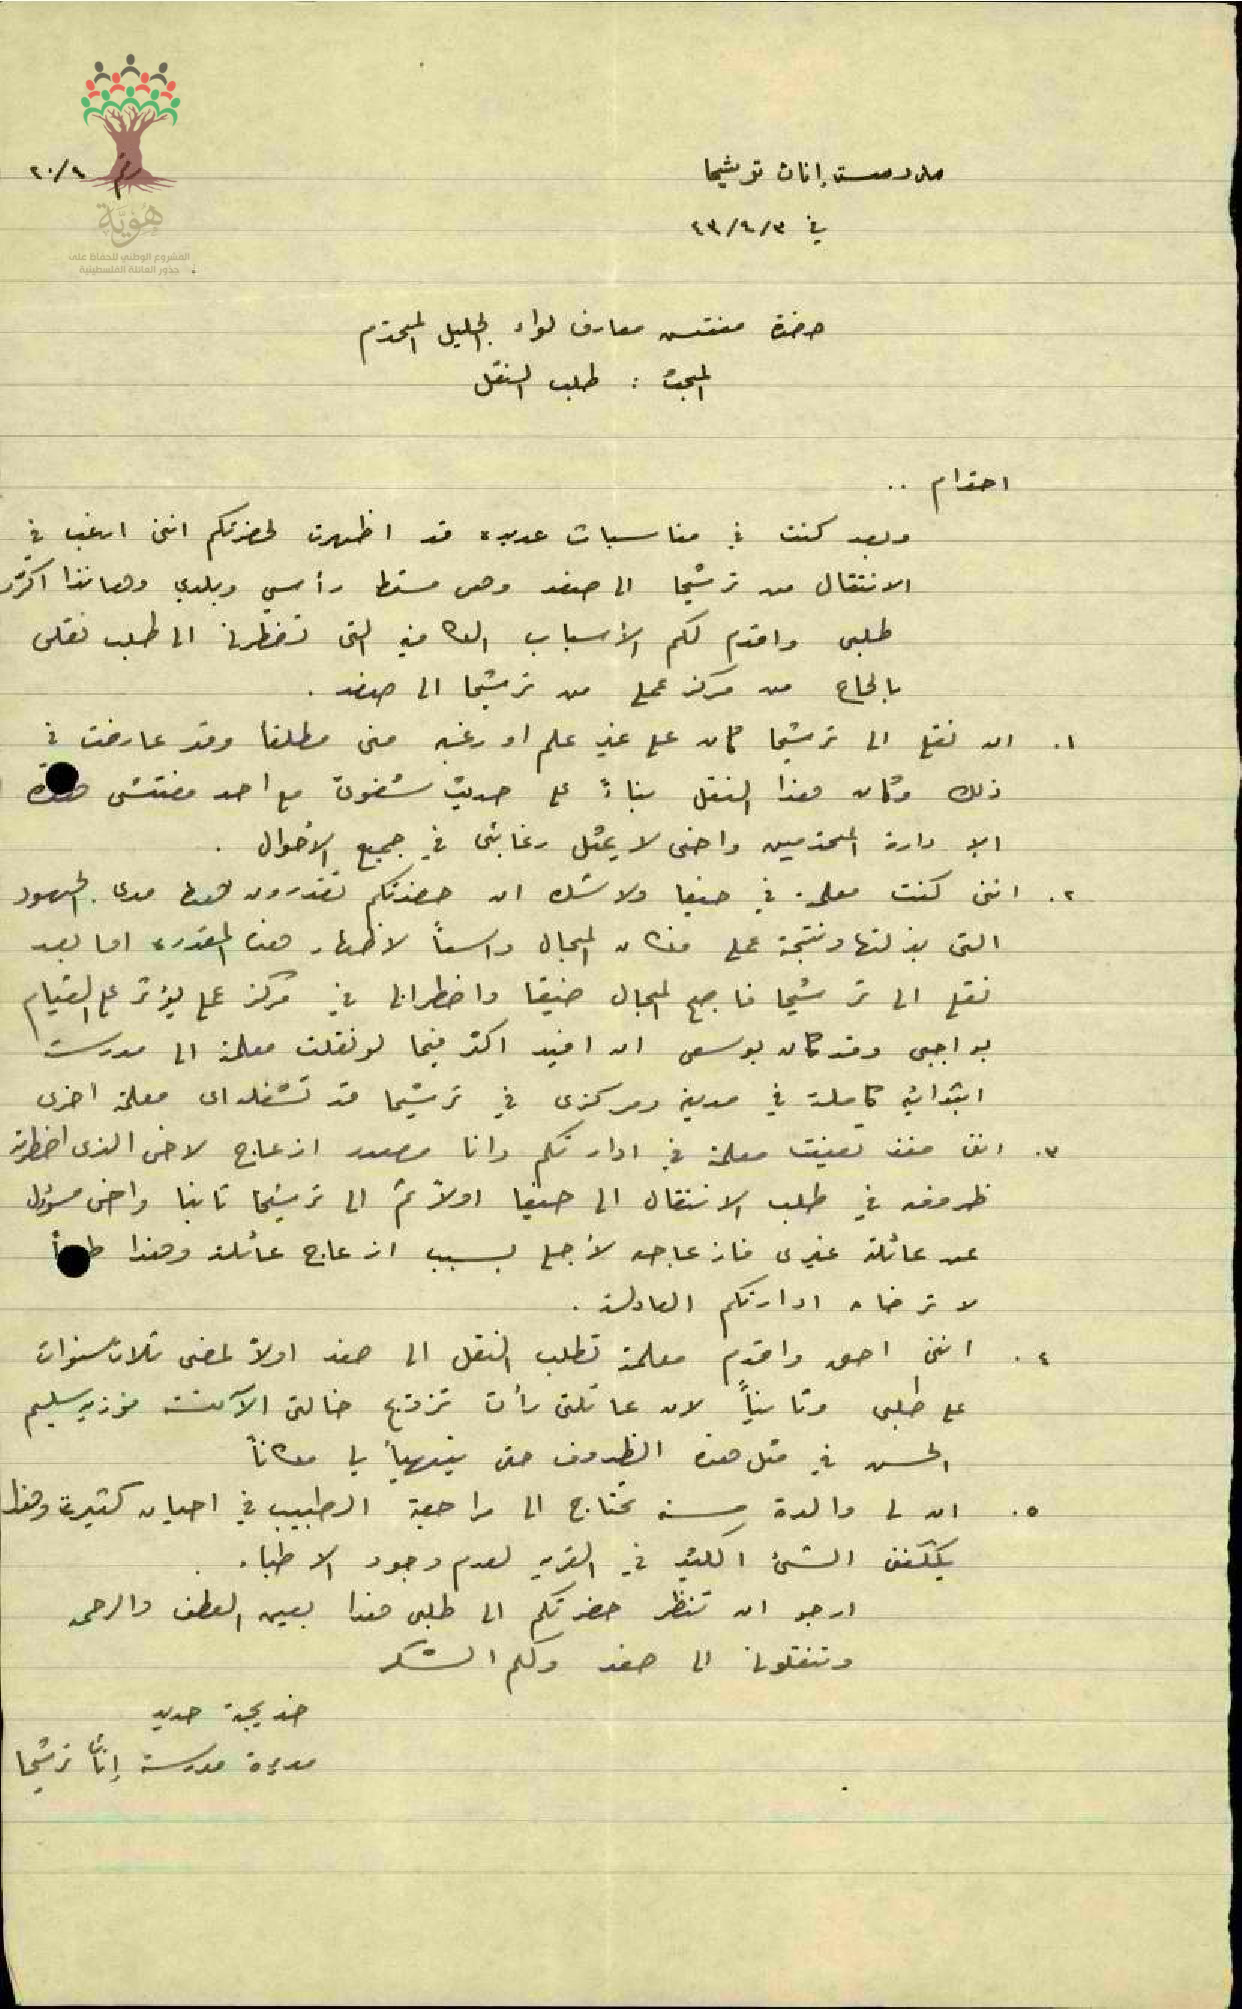 مدرسة إناث ترشيحا
رقم ٢٠/٤
في ٤٣/٤/٣
هَوِيَّة
المشروع الوطني للحفاظ على
جذور العائلة الفلسطينية
حضرة مفتش معارف لواء الجليل المحترم
المبحث : طلب النقل
احترام ..
وبعد كنت في مناسبات عديده قد اظهرت لحضرتكم انني ارغب في
الانتقال من ترشيحا الى صفد وهي مسقط رأسي وبلدي وهانذا اكرر
طلبي واقدم لكم الأسباب الكافيه التي تضطرني الى طلب نقلى
بالحاح من مركز عملي من ترشيحا الى صفد .
١. ان نقلي الى ترشيحا كان على غير علم او رغبه منى مطلقا وقد عارضت في
ذلك وكان هذا النقل بناءً على حديث شفوي مع احد مفتشى
الادارة المحترمين واخى لا يمثل رغائبى في جميع الأحوال .
٢. اننى كنت معلمة في حيفا ولا شك ان حضرتكم تقدرون مدى المجهود
التى بذلتها ونتيجة عملي فكان المجال واسعاً لاظهار هذه المقدره اما بعد
نقلي الى ترشيحا فاصبح المجال ضيقا واضطراباً في مركز عملي يؤثر على القيام
بواجبى وقد كان بوسعى ان افيد اكثر فيما لو نقلت معلمة الى مدرسة
ابتدائيه كاملة في مدينه ومركزى في ترشيحا قد تشغله اى معلمة اخرى
٣. اننى منذ تعينت معلمة في ادارتكم وانا مصدر ازعاج لاخى الذى اضطرته
ظروفه في طلب الانتقال الى حيفا اولاً ثم الى ترشيحا ثانيا واخى مسؤول
عن عائلة غيرى فازعاجه لأجلي يسبب ازعاج عائلة وهذا
لا ترضاه ادارتكم العادلة .
٤. اننى احق واقدم معلمة تطلب النقل الى صفد اولاً لمضى ثلاث سنوات
على طلبى وثانياً لان عائلتى رأت تزوج خالتى الآنسة فوزيه سليم
الحسن في مثل هذه الظروف حتى يتهيأ لي مكاناً
٥. ان لي والدة مسنه تحتاج الى مراجعة الطبيب في احيان كثيرة وهذا
يكلفنى الشىء الكثير في القريه لعدم وجود الاطباء .
ارجو ان تنظر حضرتكم الى طلبى هذا بعين العطف والرحمه
وتنقلونى الى صفد ولكم الشكر
خديجة حديد
مديرة مدرسة إناث ترشيحا